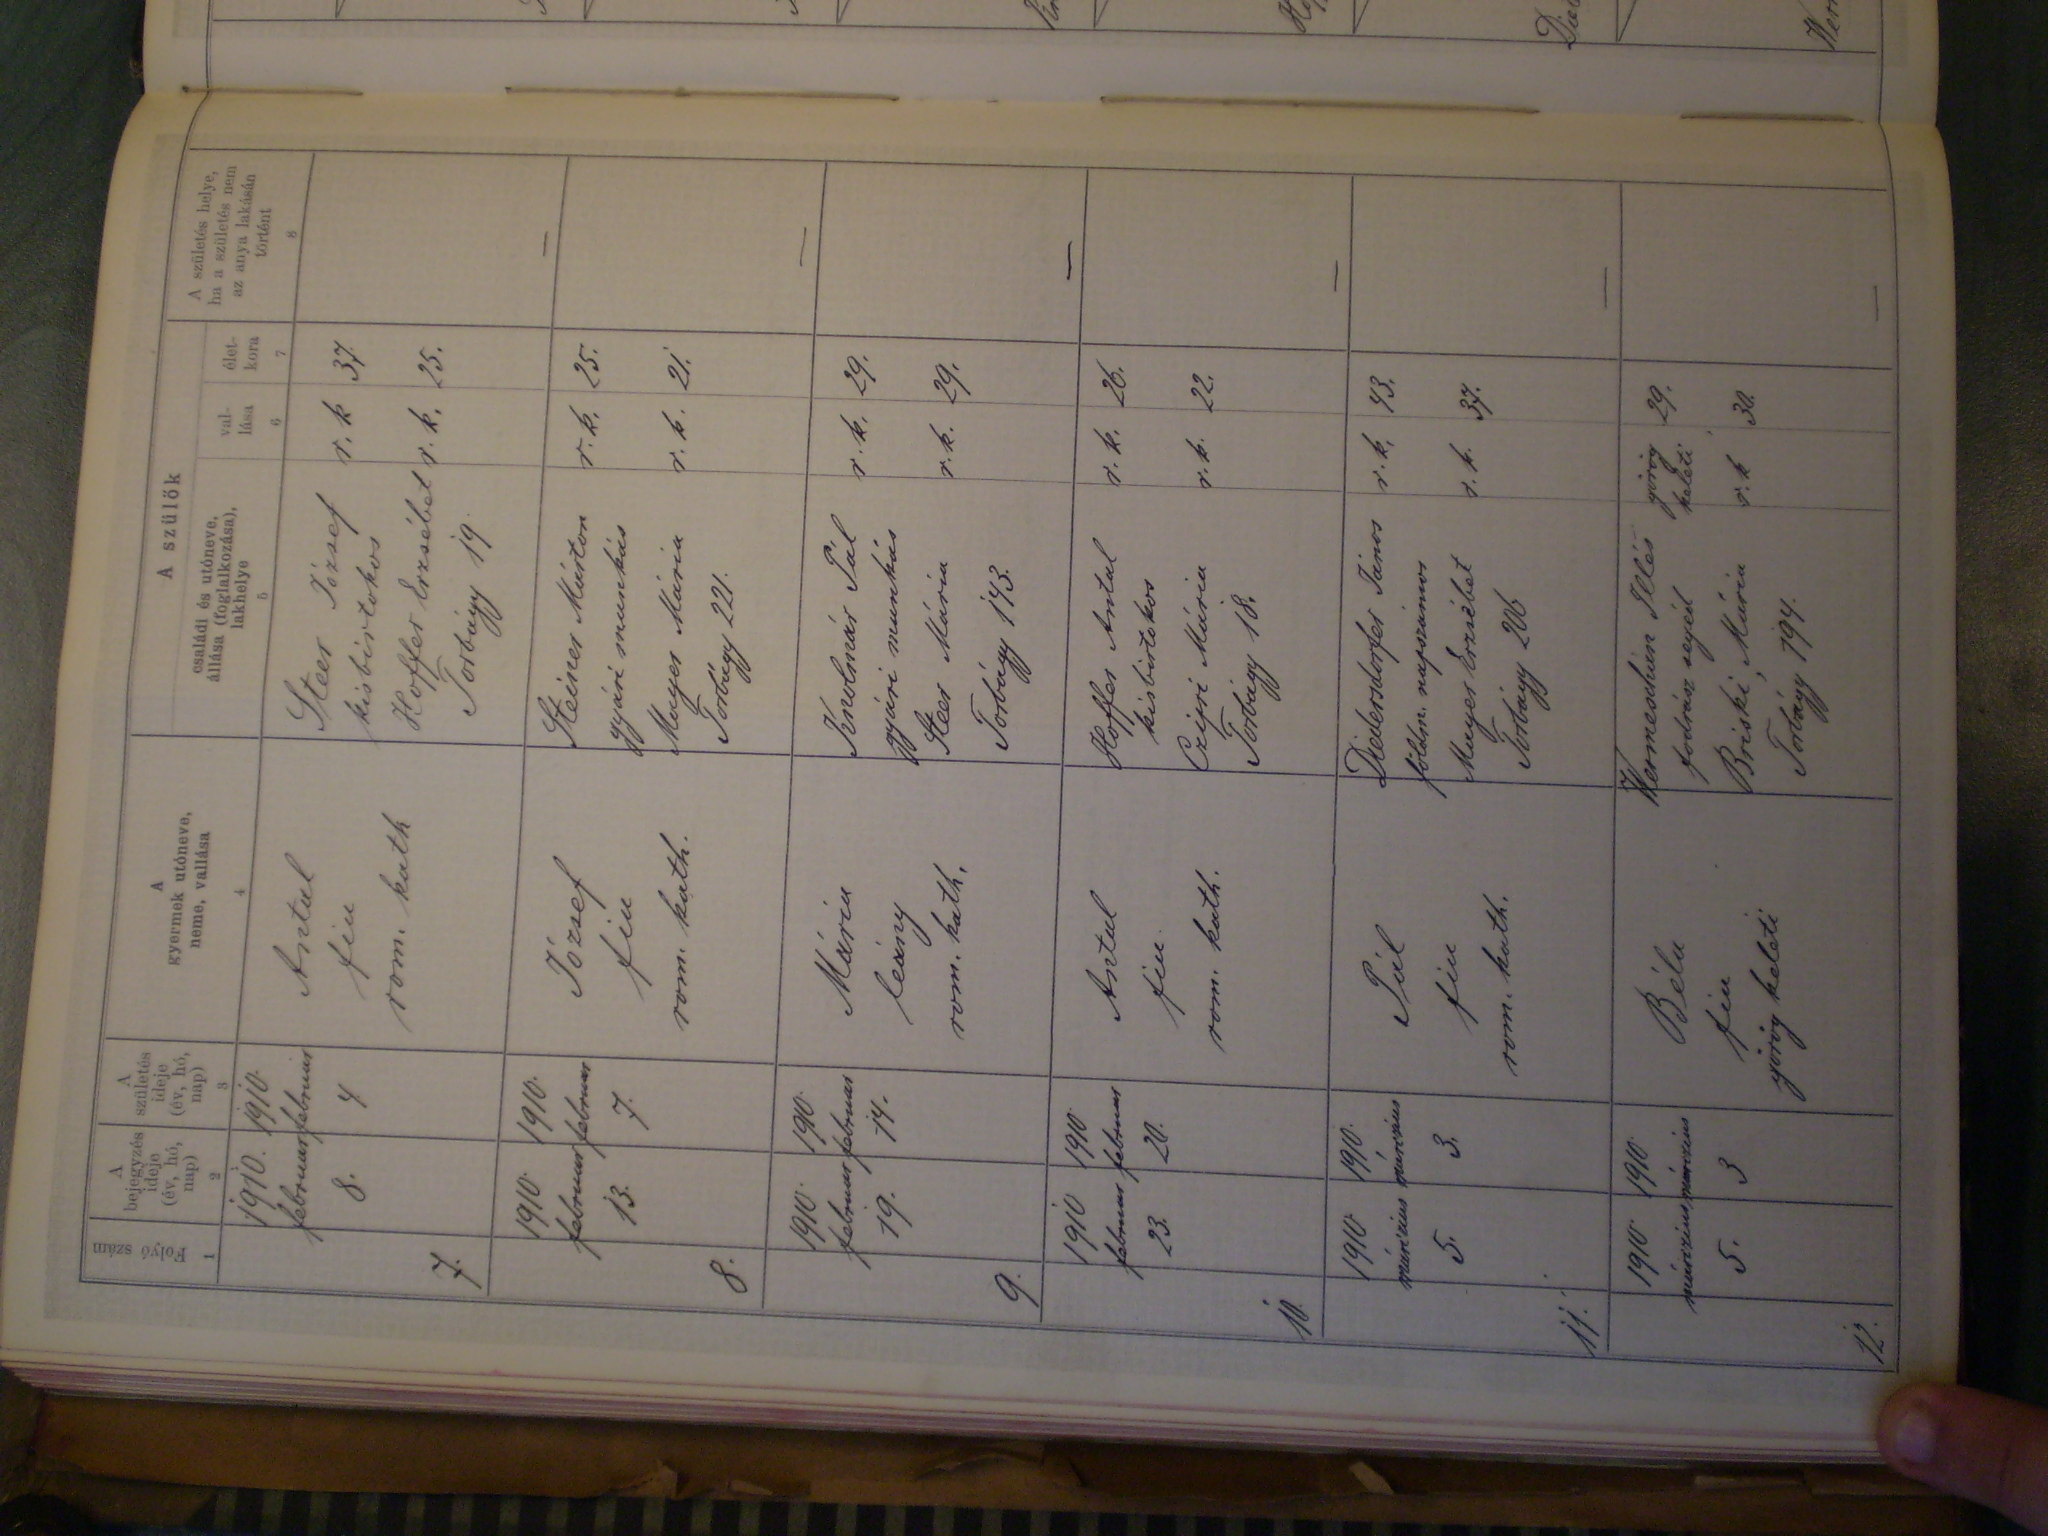 Folyó szám
1
A
bejegyzés
ideje
(év, hó,
nap)
2
A
születés
ideje
(év, hó,
nap)
3
A
gyermek utóneve,
neme, vallása
4
A szülők
családi és utóneve,
állása (foglalkozása),
lakhelye
5
val-
lása
6
élet-
kora
7
A születés helye,
ha a születés nem
az anya lakásán
történt
8
7.
1910.
februar
8.
1910.
februar
4
Antal
fiu
rom. kath
Steer József r. k 37.
kisbirtokos
Hoffer Erzsébet r. k. 25.
Torbágy 19.
—
8.
1910.
februar
13.
1910.
februar
7.
József
fiu
rom. kath.
Steiner Márton r. k. 25.
gyári munkás
Mayer Mária r. k. 21.
Torbágy 221.
—
9.
1910.
februar
19.
1910.
februar
14.
Mária
leány
rom. kath.
Pál r. k. 29.
gyári munkás
Steer Mária r. k. 29.
Torbágy 143.
—
10.
1910
februar
23.
1910.
februar
20.
Antal
fiu.
rom. kath.
Hoffer Antal r. k. 26.
kisbirtokos
Czijri Mária r. k. 22.
Torbágy 18.
—
11.
1910
márczius
5.
1910.
márczius
3.
Pál
fiu
rom. kath.
János r. k. 43.
földm. napszámos
Mayer Erzsébet r. k. 37.
Torbágy 206
—
12.
1910.
márczius
5.
1910.
márczius
3
Béla
fiu
görög keleti
Illés görög keleti 29.
fodrász segéd
Briski Mária r. k 30.
Torbágy 194.
—